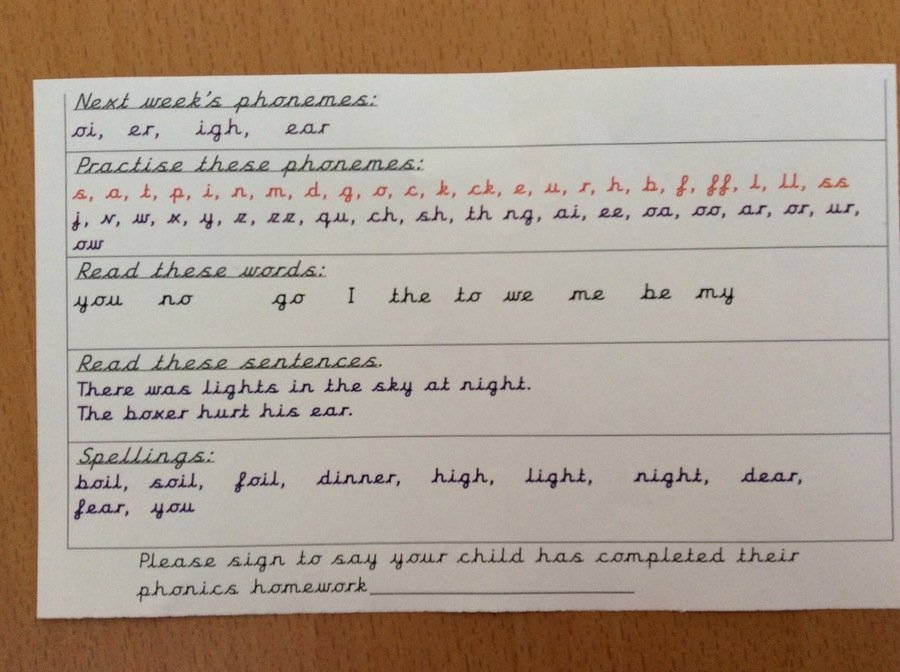 Next week's phonemes:
oi, er, igh, ear
Practise these phonemes:
s, a, t, p, i, n, m, d, g, o, c, k, ck, e, u, r, h, b, f, ff, l, ll, ss
j, v, w, x, y, z, zz, qu, ch, sh, th ng, ai, ee, oa, oo, ar, or, ur,
ow
Read these words:
you no go I the to we me be my
Read these sentences.
There was lights in the sky at night.
The boxer hurt his ear.
Spellings:
boil, soil, foil, dinner, high, light, night, dear,
fear, you
Please sign to say your child has completed their
phonics homework